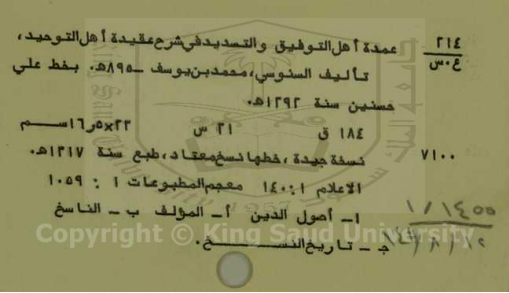 ٢١٤ عمدة أهل التوفيق والتسديد في شرح عقيدة أهل التوحيد،
ع٠س تأليف السنوسي، محمد بن يوسف ـ ٨٩٥هـ. بخط علي
حسنين سنة ١٢٩٢هـ.
١٨٤ ق ٢١ س ٢٢×١٦٫٥ سم
٧١٠٠ نسخة جيدة، خطها نسخ معتاد، طبع سنة ١٣١٧هـ.
الاعلام ١٤٠:١ معجم المطبوعات ١ : ١٠٥٩
١ـ أصول الدين أ ـ المؤلف ب ـ الناسخ
جـ ـ تاريخ النسخ.
١/١٤٥٥
Copyright © King Saud University